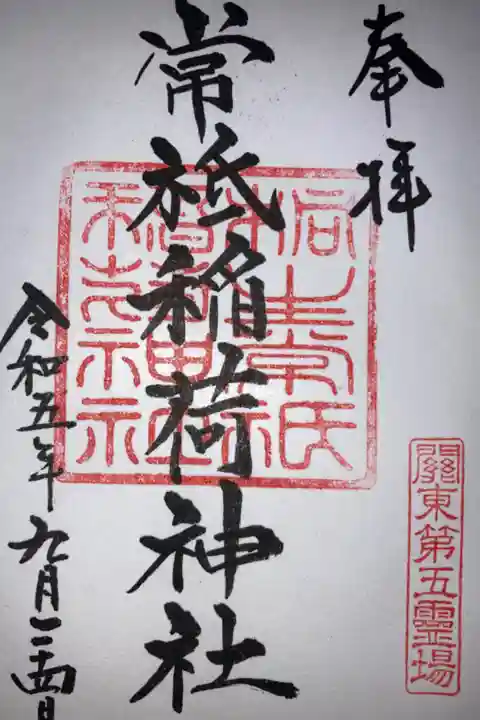 奉拝
關東第五霊場
常祇稲荷神社
令和五年九月二十四日